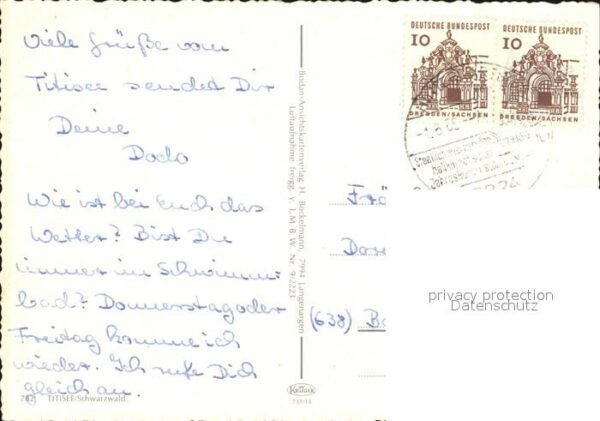 Viele Grüße vom
Titisee sendet Dir
Deine
Dodo
Wie ist bei Euch das
Wetter? Bist Du
immer im Schwimm-
bad? Donnerstag oder
Freitag komme ich
wieder. Ich rufe Dich
gleich an.
782 TITISEE/Schwarzwald
Bodan-Ansichtskartenverlag H. Bockelmann, 7994 Langenargen
Luftaufnahme freigg. v. I. M. B. W. Nr. 9/2221
KRÜGER
DEUTSCHE BUNDESPOST
10
DRESDEN/SACHSEN
DEUTSCHE BUNDESPOST
10
DRESDEN/SACHSEN
(638)
privacy protection
Datenschutz